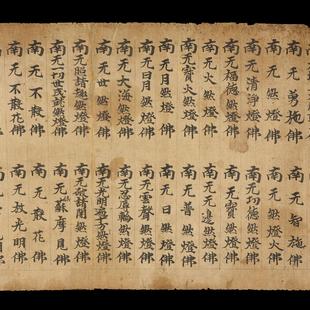 南无勇施佛 南无智施佛
南无燃燈佛 南无燃燈火佛
南无清淨燃燈佛 南无功德燃燈佛
南无福德燃燈佛 南无寶燃燈佛
南无火燃燈佛 南无无邊燃燈佛
南无寶火燃燈佛 南无普燃燈佛
南无月燃燈佛 南无日燃燈佛
南无日月燃燈佛 南无雲聲燃燈佛
南无大海燃燈佛 南无忍辱輪燃燈佛
南无世燃燈佛 南无光明遍十方燃燈佛
南无照諸趣燃燈佛 南无破諸闇燃燈佛
南无一切世成就燃燈佛 南无蘇摩見佛
南无不散佛 南无散花佛
南无不散花佛 南无放光明佛